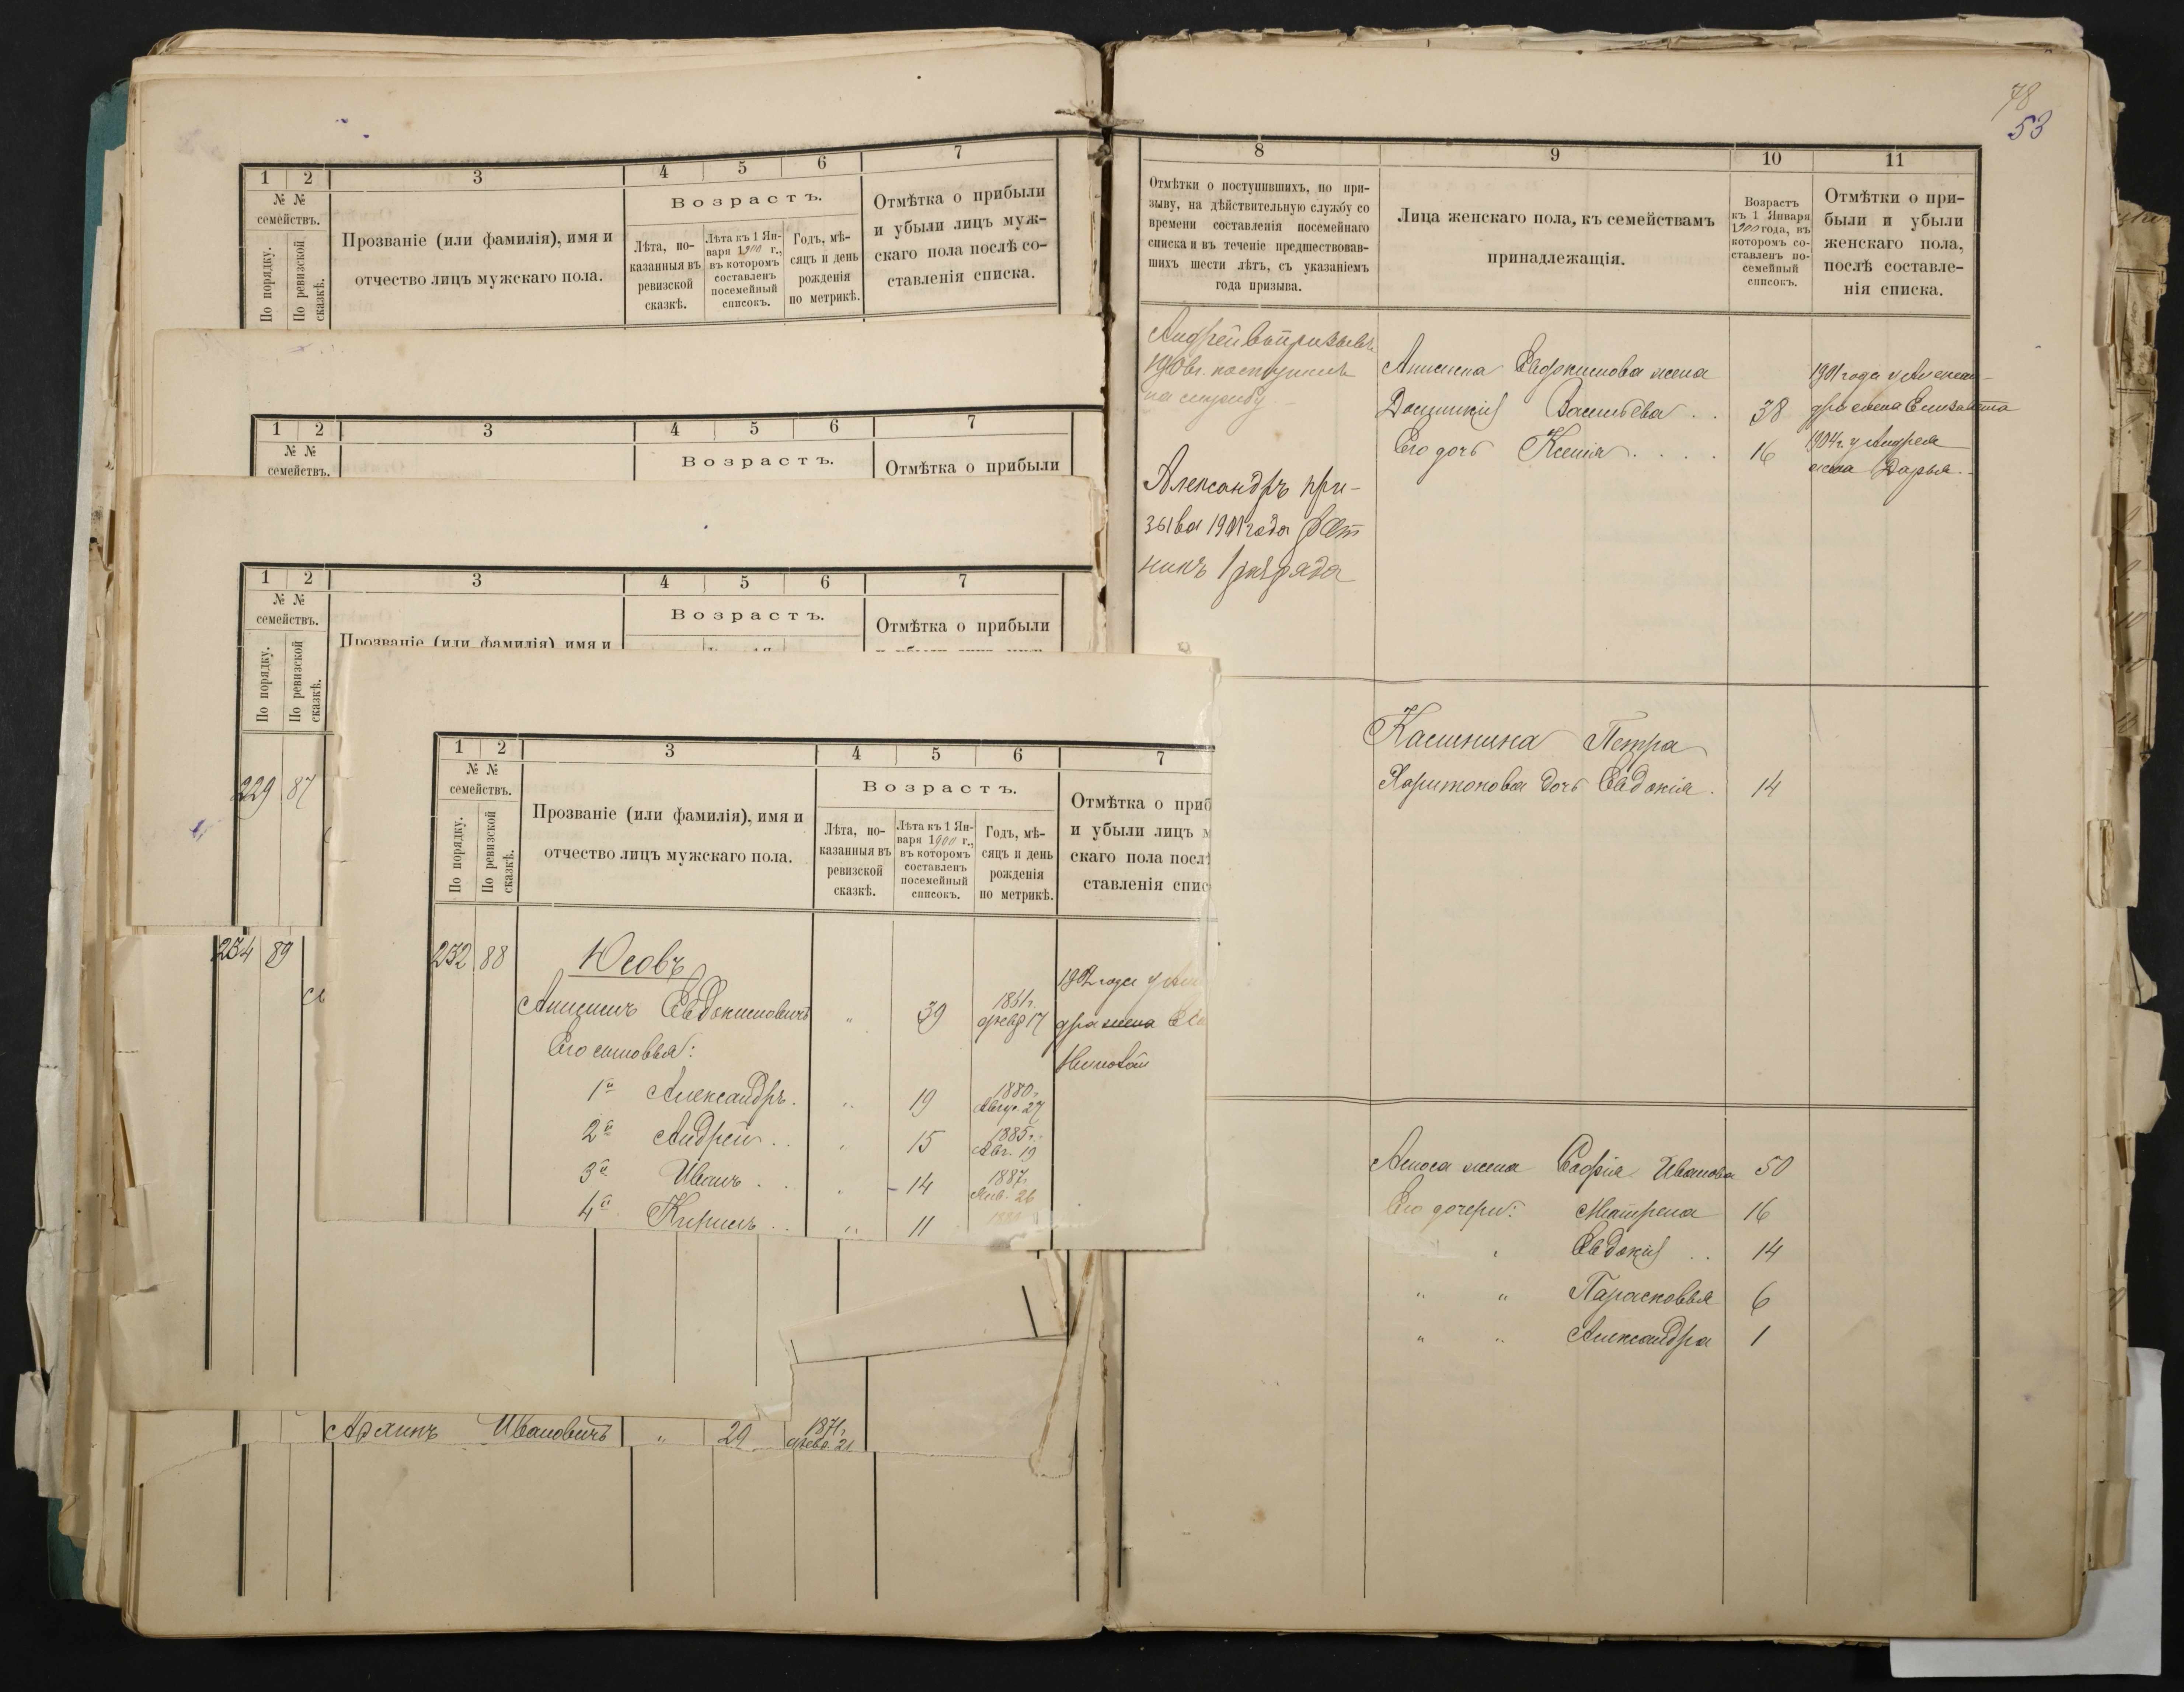 1 2 3 4 5 6 7
№ №
семействъ.
По порядку.
По ревизской
сказкѣ.
Прозваніе (или фамилія), имя и
отчество лицъ мужскаго пола.
Возрастъ.
Лѣта, по-
казанныя въ
ревизской
сказкѣ.
Лѣта къ 1 Ян-
варя 1900 г.,
въ которомъ
составленъ
посемейный
списокъ.
Годъ, мѣ-
сяцъ и день
рожденія
по метрикѣ.
Отмѣтка о прибыли
и убыли лицъ муж-
скаго пола послѣ со-
ставленія списка.
1 2 3 4 5 6 7
№ №
семействъ.
Возрастъ.
Отмѣтка о прибыли
1 2 3 4 5 6 7
№ №
семействъ.
По порядку.
По ревизской
сказкѣ.
Прозваніе (или фамилія) имя и
Возрастъ.
Отмѣтка о прибыли
229 87
234 89
1 2 3 4 5 6 7
№ №
семействъ.
По порядку.
По ревизской
сказкѣ.
Прозваніе (или фамилія), имя и
отчество лицъ мужскаго пола.
Возрастъ.
Лѣта, по-
казанныя въ
ревизской
сказкѣ.
Лѣта къ 1 Ян-
варя 1900 г.,
въ которомъ
составленъ
посемейный
списокъ.
Годъ, мѣ-
сяцъ и день
рожденія
по метрикѣ.
Отмѣтка о приб
и убыли лицъ м
скаго пола послѣ
ставленія спис
232 88 Юсовъ
Анисимъ Евдокимовичъ " 39 1861г. февр 17
Его сыновья:
1й Александръ. " 19 1880г. Авгу. 27
2й Андрей .. " 15 1885г. Авг. 19
3й Иванъ .. " 14 1887г. Янв. 26
4й Кирилъ .. " 11
1902 года у
дра жена
Ивановичъ " 29 1871г. февр. 21
78
53
8 9 10 11
Отмѣтки о поступившихъ, по при-
зыву, на дѣйствительную службу со
времени составленія посемейнаго
списка и въ теченіе предшествовав-
шихъ шести лѣтъ, съ указаніемъ
года призыва.
Лица женскаго пола, къ семействамъ
принадлежащія.
Возрастъ
къ 1 Января
1900 года, въ
которомъ со-
ставленъ по-
семейный
списокъ.
Отмѣтки о при-
были и убыли
женскаго пола,
послѣ составле-
нія списка.
Андрей въ призывъ
1906г. поступилъ
на службу
Александръ при-
зыва 1901 года Рат
никъ 1 разряда
Анисима Евдокимова жена
Домникія Васильева .. 38
Его дочь Ксенія .... 16
1901 года у Алексан-
дра жена Елизавета
1904г. у Андрея
жена Дарья.
Калинина Петра
Харитонова дочь Евдокія. 14
Амоса жена Софія Иванова 50
Его дочери: Матрена 16
" Евдокія .. 14
" " Парасковья 6
" " Александра 1